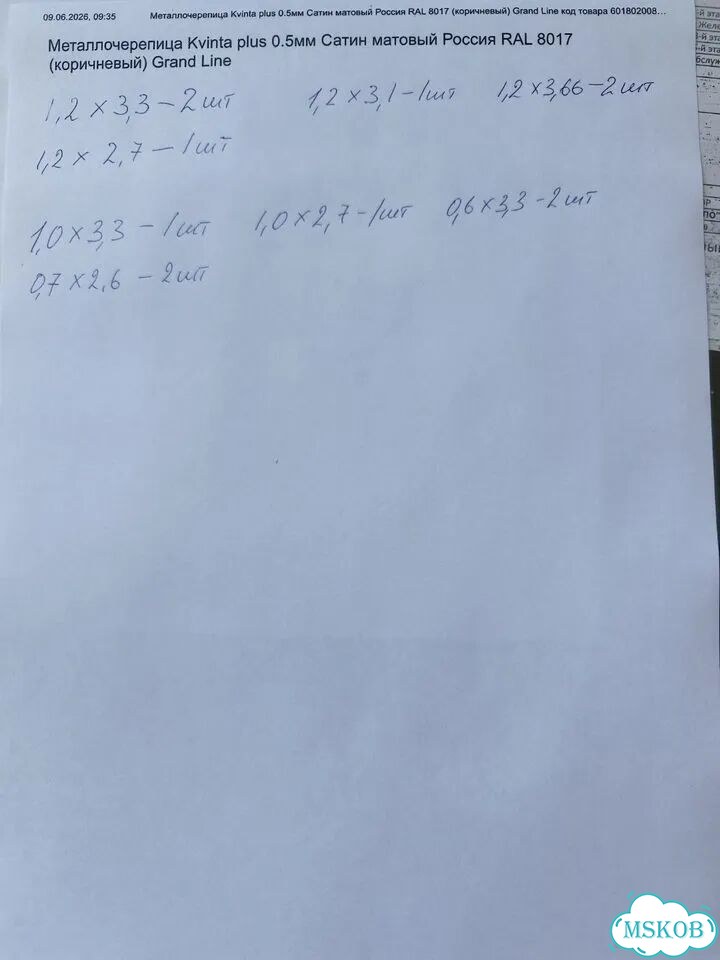 09.06.2026, 09:35 Металлочерепица Kvinta plus 0.5мм Сатин матовый Россия RAL 8017 (коричневый) Grand Line код товара 601802008…
Металлочерепица Kvinta plus 0.5мм Сатин матовый Россия RAL 8017
(коричневый) Grand Line
1,2 x 3,3 – 2 шт 1,2 x 3,1 – 1 шт 1,2 x 3,66 – 2 шт
1,2 x 2,7 – 1 шт
1,0 x 3,3 – 1 шт 1,0 x 2,7 – 1 шт 0,6 x 3,3 – 2 шт
0,7 x 2,6 – 2 шт
MSKOB